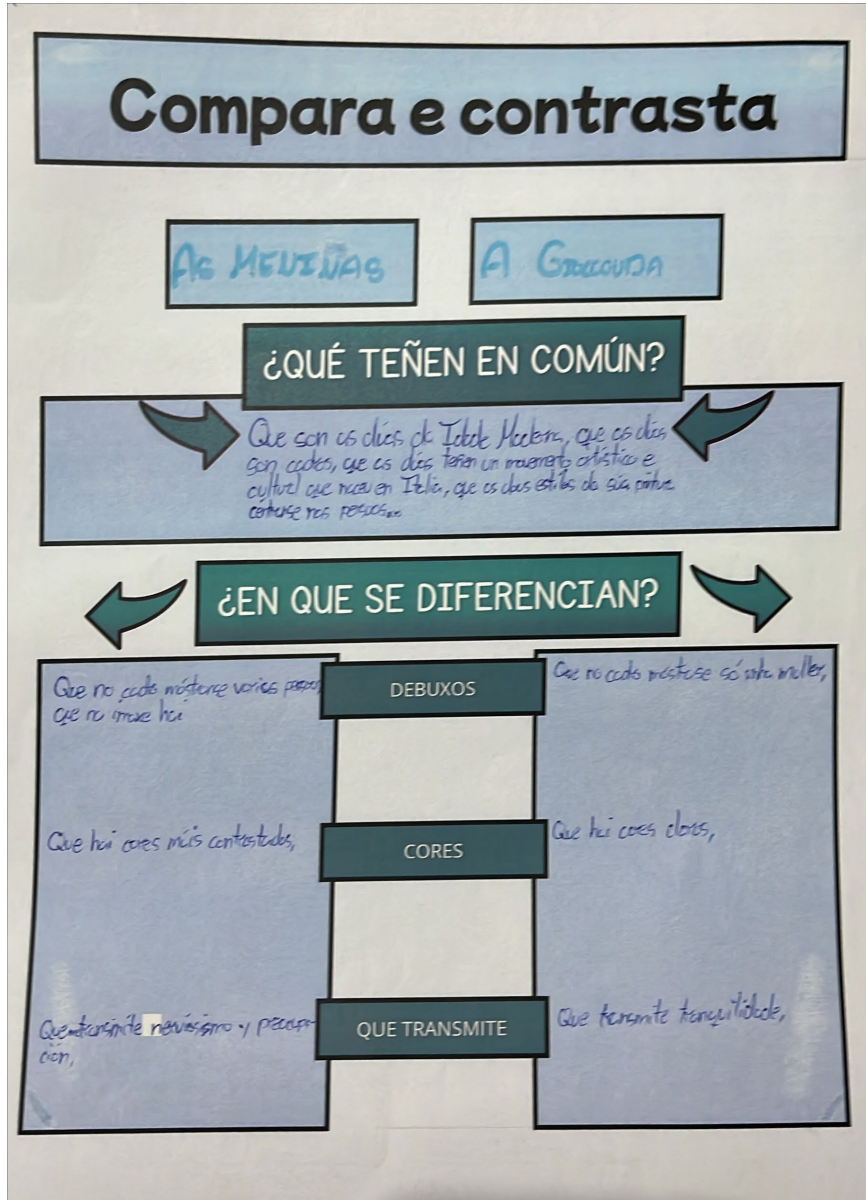 Compara e contrasta
AS MENIÑAS
A GIOCCONDA
¿QUÉ TEÑEN EN COMÚN?
Que son os dúas da Idade Moderna, que as dúas
son cadros, que as dúas teñen un movemento artístico e
cultural que nace en Italia, que os dous estilos da súa pintura
céntranse nas persoas...
¿EN QUE SE DIFERENCIAN?
Que no cadro móstrase varias
que na hai
DEBUXOS
Que no cadro móstrase só unha muller,
Que hai cores máis contrastadas,
CORES
Que hai cores claros,
Que transmite nerviosismo y preocupa-
ción,
QUE TRANSMITE
Que transmite tranquilidade,